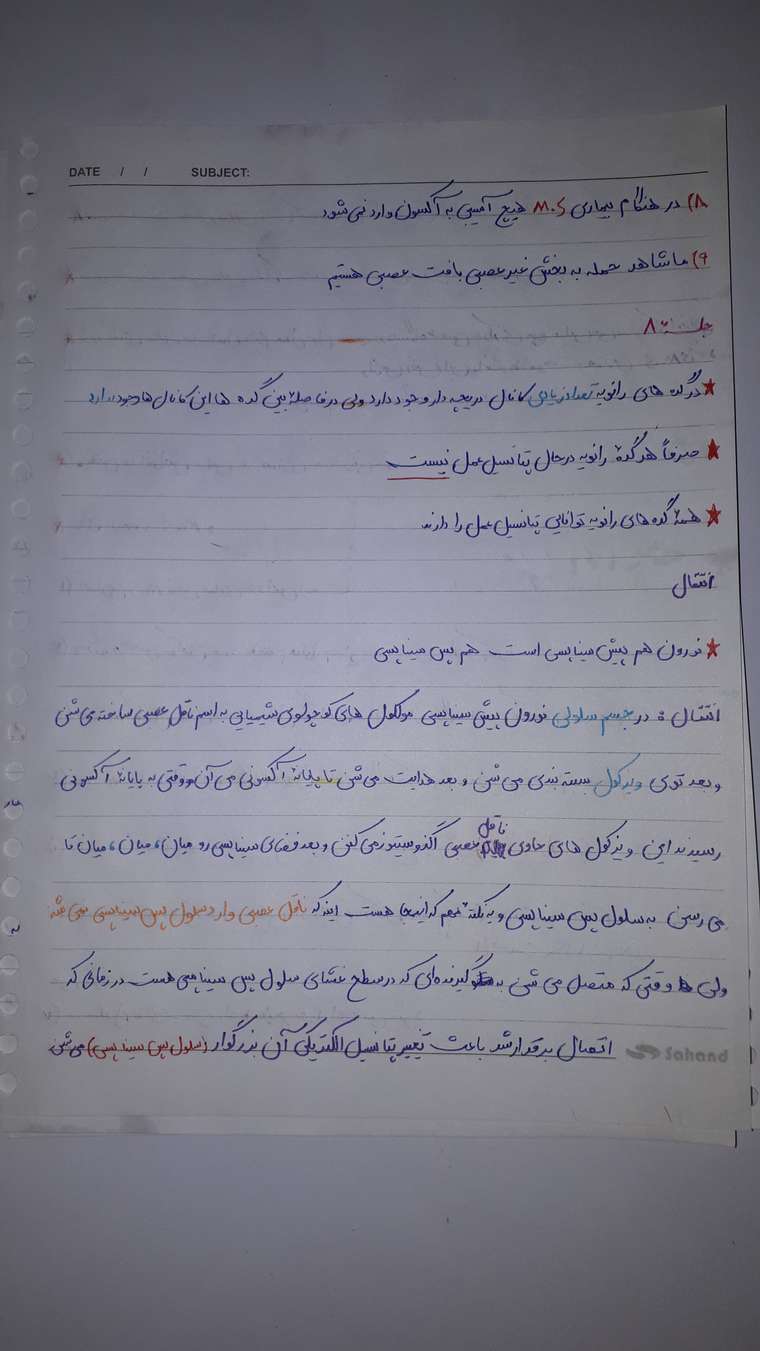 DATE / / SUBJECT:
۸) در هنگام بیماری M.S هیچ آسیبی به آکسون وارد نمی شود
۹) ما شاهد حمله به بخش غیر عصبی بافت عصبی هستیم
جلسه ۸
★ در گره های رانویه تعداد زیادی کانال دریچه دار وجود دارد ولی در فاصلهٔ بین گره ها این کانال ها وجود ندارد
★ صرفاً هر گرهٔ رانویه در حال پتانسیل عمل نیست
★ همهٔ گره های رانویه توانایی پتانسیل عمل را دارند
انتقال
★ نورون هم پیش سیناپسی است هم پس سیناپسی
انتقال : در جسم سلولی نورون پیش سیناپسی مولکول های کوچولوی شیمیایی به اسم ناقل عصبی ساخته می شن
و بعد توی ویزکول بسته بندی می شن و بعد هدایت می شن تا پایانهٔ آکسونی می آن و وقتی به پایانهٔ آکسونی
رسیدند این ویزکول های حاوی ناقل عصبی اگزوسیتوز می کنن و بعد فضای سیناپسی رو میان، میان، میان تا
می رسن به سلول پس سیناپسی و یه نکتهٔ مهم که اینجا هست اینه که ناقل عصبی وارد سلول پس سیناپسی نمی شه
ولی وقتی که متصل می شن به گیرنده ای که در سطح غشای سلول پس سیناپسی هست در زمانی که
اتصال برقرار شد باعث تغییر پتانسیل الکتریکی آن بزرگوار (سلول پس سیناپسی) می شن
Sahand